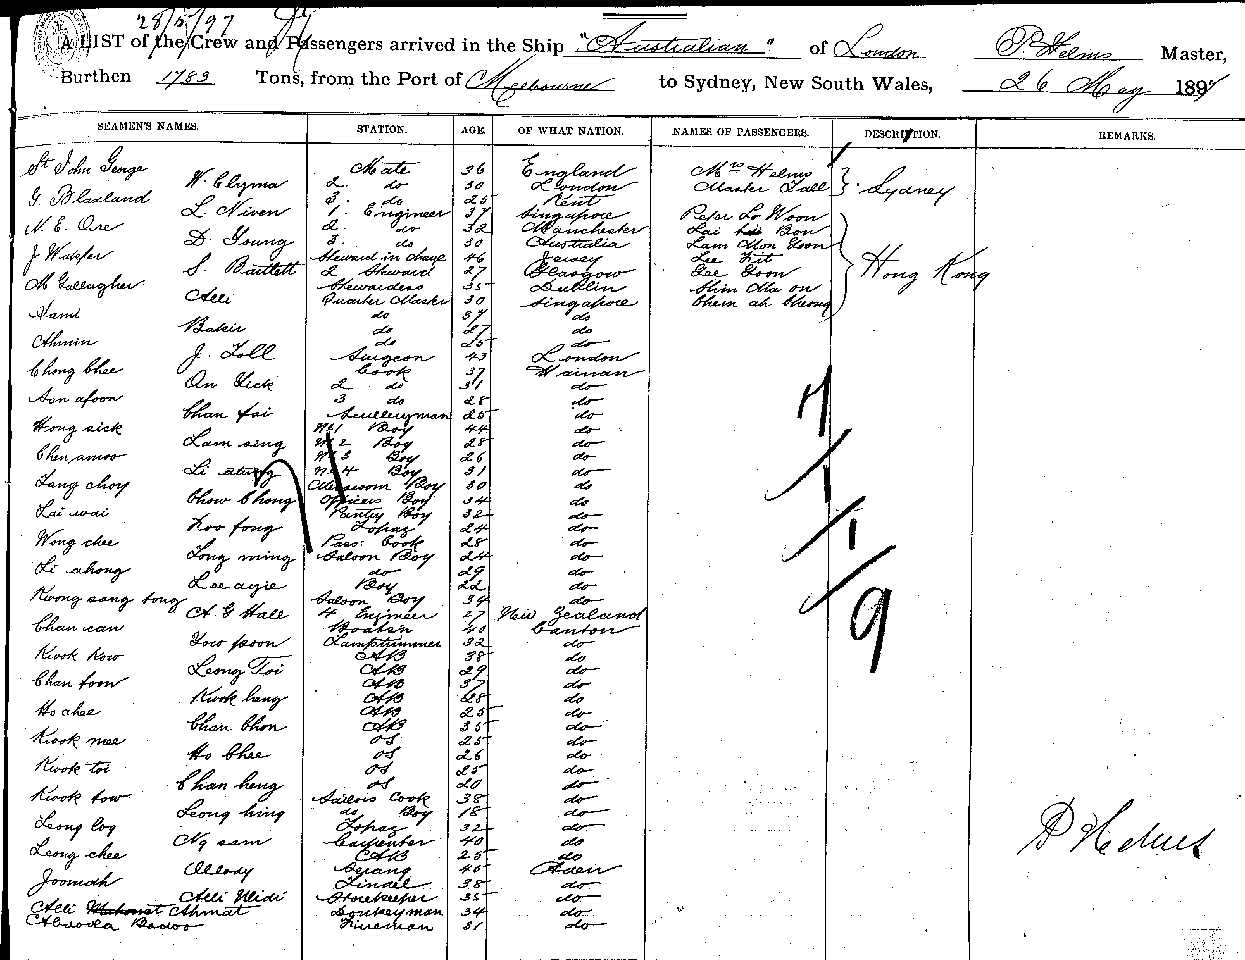 28/5/97
A LIST of the Crew and Passengers arrived in the Ship "Australian" of London P. Helms Master,
Burthen 1783 Tons, from the Port of Melbourne to Sydney, New South Wales, 26 May 1897
SEAMEN'S NAMES. STATION. AGE OF WHAT NATION. NAMES OF PASSENGERS. DESCRIPTION. REMARKS.
St John George Mate 36 England Mrs Helms
W. Clyma 2 do 30 London Master Tall Sydney
G. Blaxland 3 do 25 Kent
L Niven 1 Engineer 37 Singapore Peter Lo Woon
N. E. Ore 2 do 32 Manchester Lai Bon
D. Young 3 do 30 Australia Lam Mon Goon
J Steward in charge 46 Jersey Lee Kit
S. Bartlett 2 Steward 27 Glasgow Goon Hong Kong
M Gallagher Stewardess 35 Dublin Shim Ma on
Alli Quarter Master 30 Singapore Chun ah Cheong
Hami do 37 do
Bakir do 27 do
Ahmin do 25 do
J. Toll Surgeon 43 London
Chong Chee Cook 37 Hainan
On Teck 2 do 31 do
Son afoon 3 do 28 do
Chan fai Scullery man 25 do
Hong sick No 1 Boy 44 do
Lam sing No 2 Boy 28 do
Chen amoo No 3 Boy 26 do
Li No 4 Boy 31 do
Tang choy Messroom Boy 30 do
Chow Chong Officers Boy 34 do
Lai wai Pantry Boy 32 do
Koo fong Topaz 24 do
Wong chee Pass. Cook 28 do
Tong ming Saloon Boy 24 do
Li ahong do 29 do
Lee agie Boy 22 do
Kwong sang tong Saloon Boy 34 do
A. G Hall 4 Engineer 27 New Zealand
Chan can Boats'n 40 Canton
Tow poon Lamptrimmer 32 do
Kwok Kow AB 38 do
Leong Toi AB 29 do
Chan foon AB 37 do
Kwok hang AB 28 do
Ho chee AB 25 do
Chan Chon AB 35 do
Kwok mee OS 25 do
Ho Chee OS 26 do
Kwok toi OS 25 do
Chan heng OS 20 do
Kwok tow Sailors Cook 38 do
Leong hing do Boy 18 do
Leong loy Topaz 32 do
Ng sam Carpenter 40 do
Leong chee AB 25 do
Allody Serang 45 Aden
Joomah Tindel 38 do
Alli Ulidi Storekeeper 35 do
Alli Ahmat Donkeyman 34 do
Abdoola Badoo Fireman 31 do
7/1/1/9
P Helms